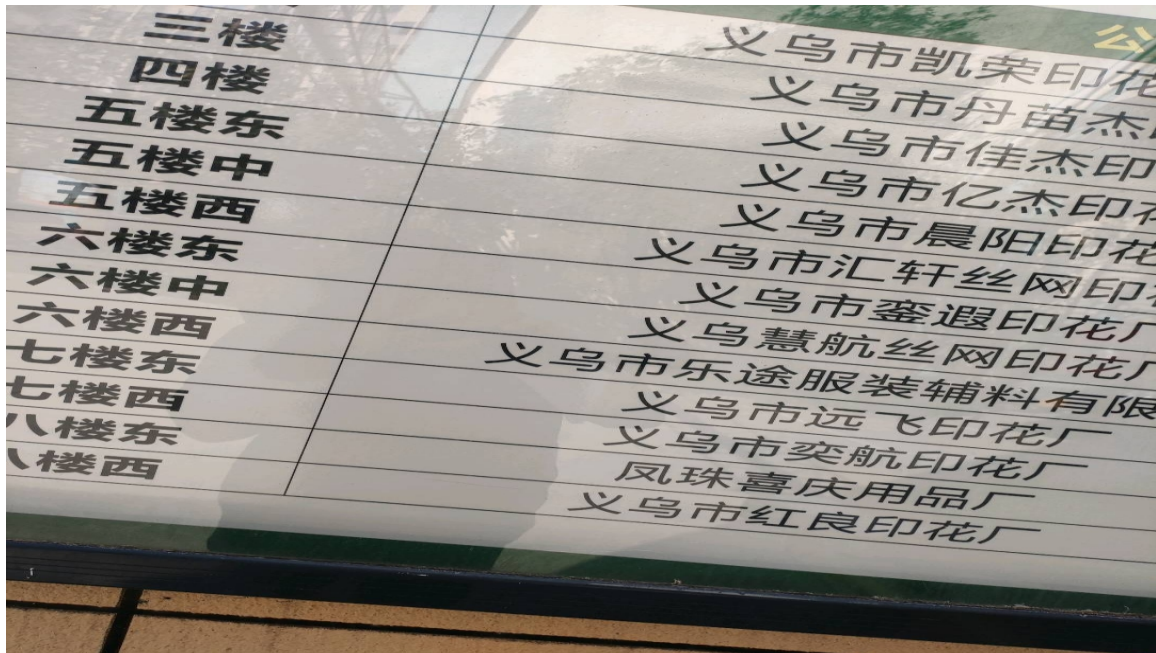 公
义乌市凯荣印花
三楼 义乌市丹苗杰印
四楼 义乌市佳杰印
五楼东 义乌市亿杰印花
五楼中 义乌市晨阳印花
五楼西 义乌市汇轩丝网印花
六楼东 义乌市銮遐印花厂
六楼中 义乌慧航丝网印花厂
六楼西 义乌市乐途服装辅料有限
七楼东 义乌市远飞印花厂
七楼西 义乌市奕航印花厂
八楼东 凤珠喜庆用品厂
八楼西 义乌市红良印花厂